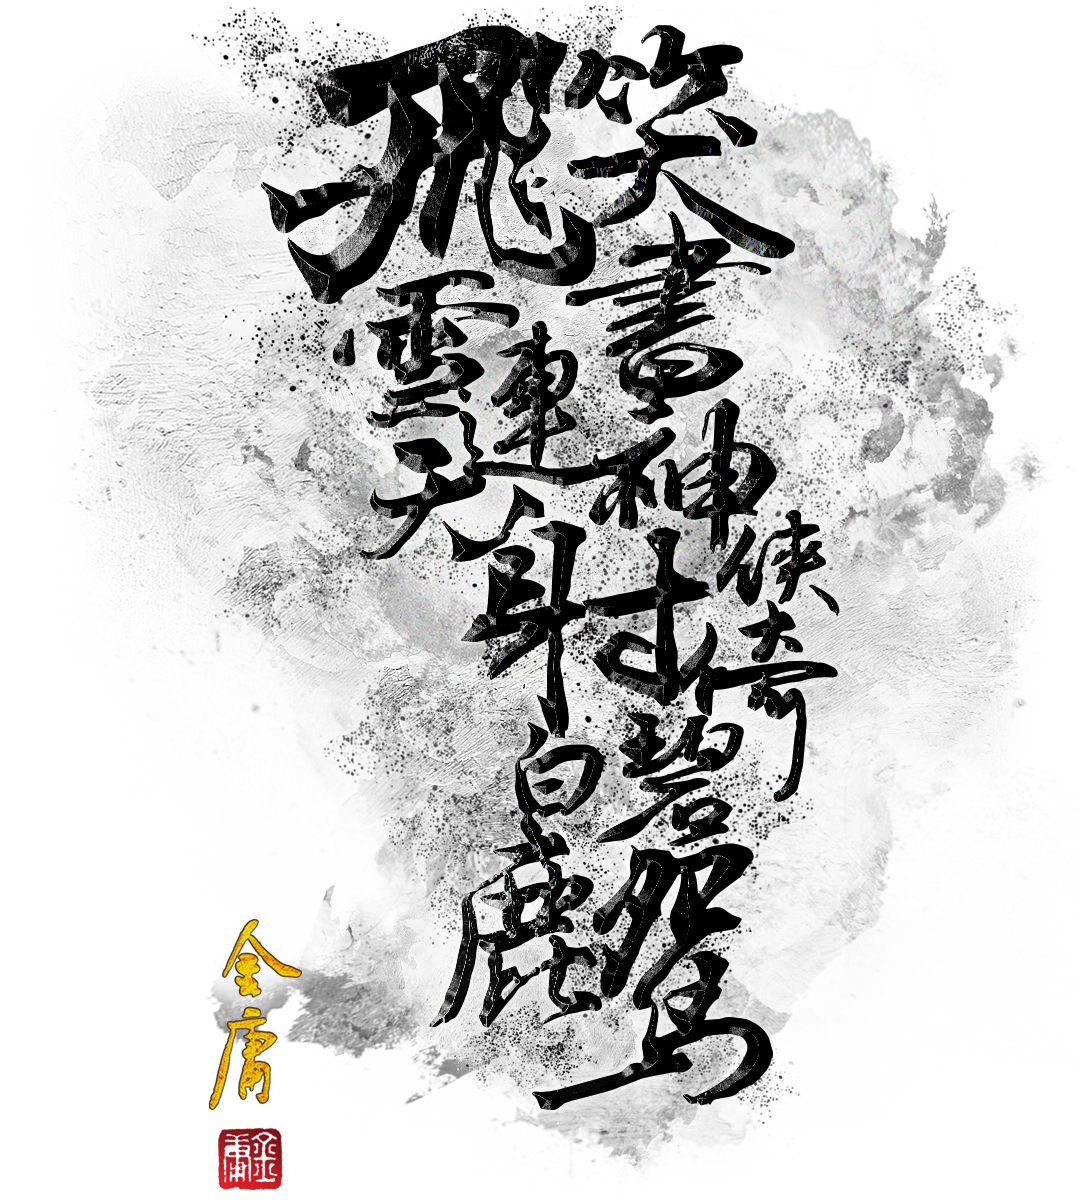 飛雪連天射白鹿
笑書神俠倚碧鴛
金庸
金庸